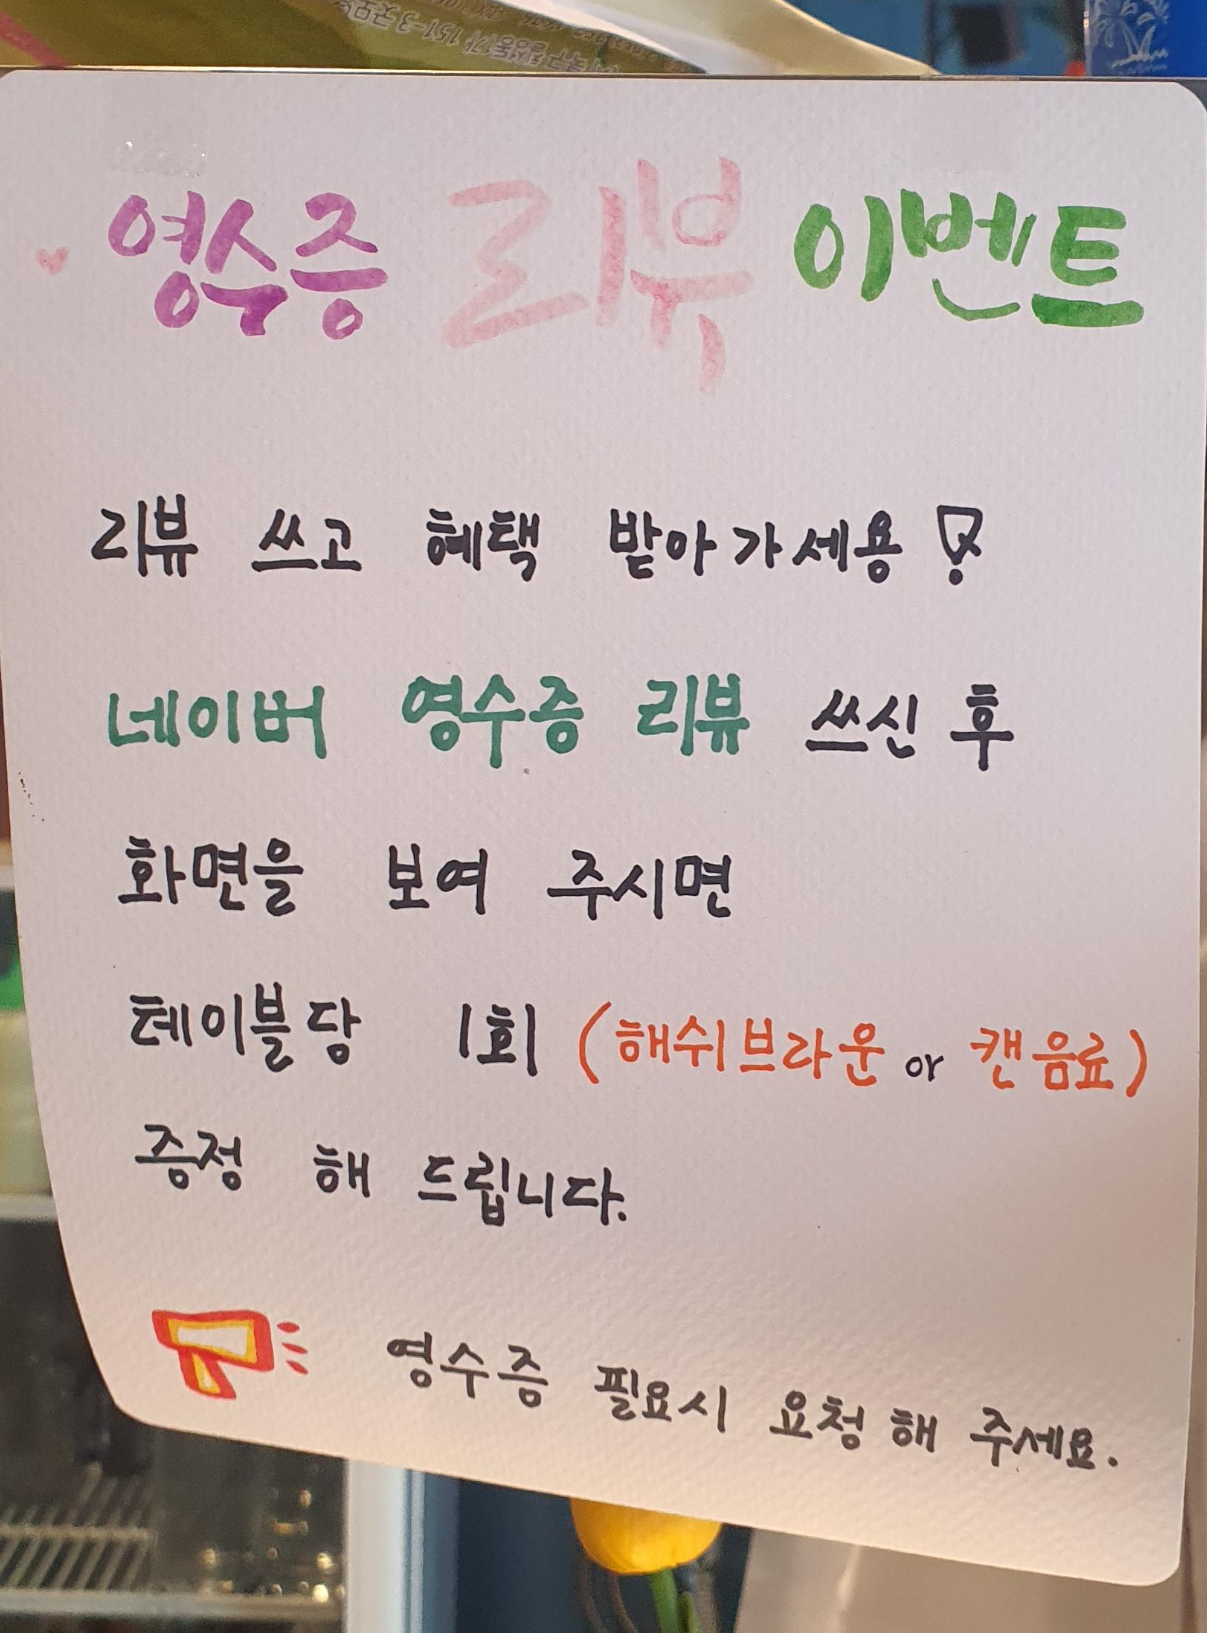 151-3
영수증 리뷰 이벤트
리뷰 쓰고 혜택 받아가세용!
네이버 영수증 리뷰 쓰신 후
화면을 보여 주시면
테이블당 1회 (해쉬브라운 or 캔음료)
증정 해 드립니다.
영수증 필요시 요청해 주세요.